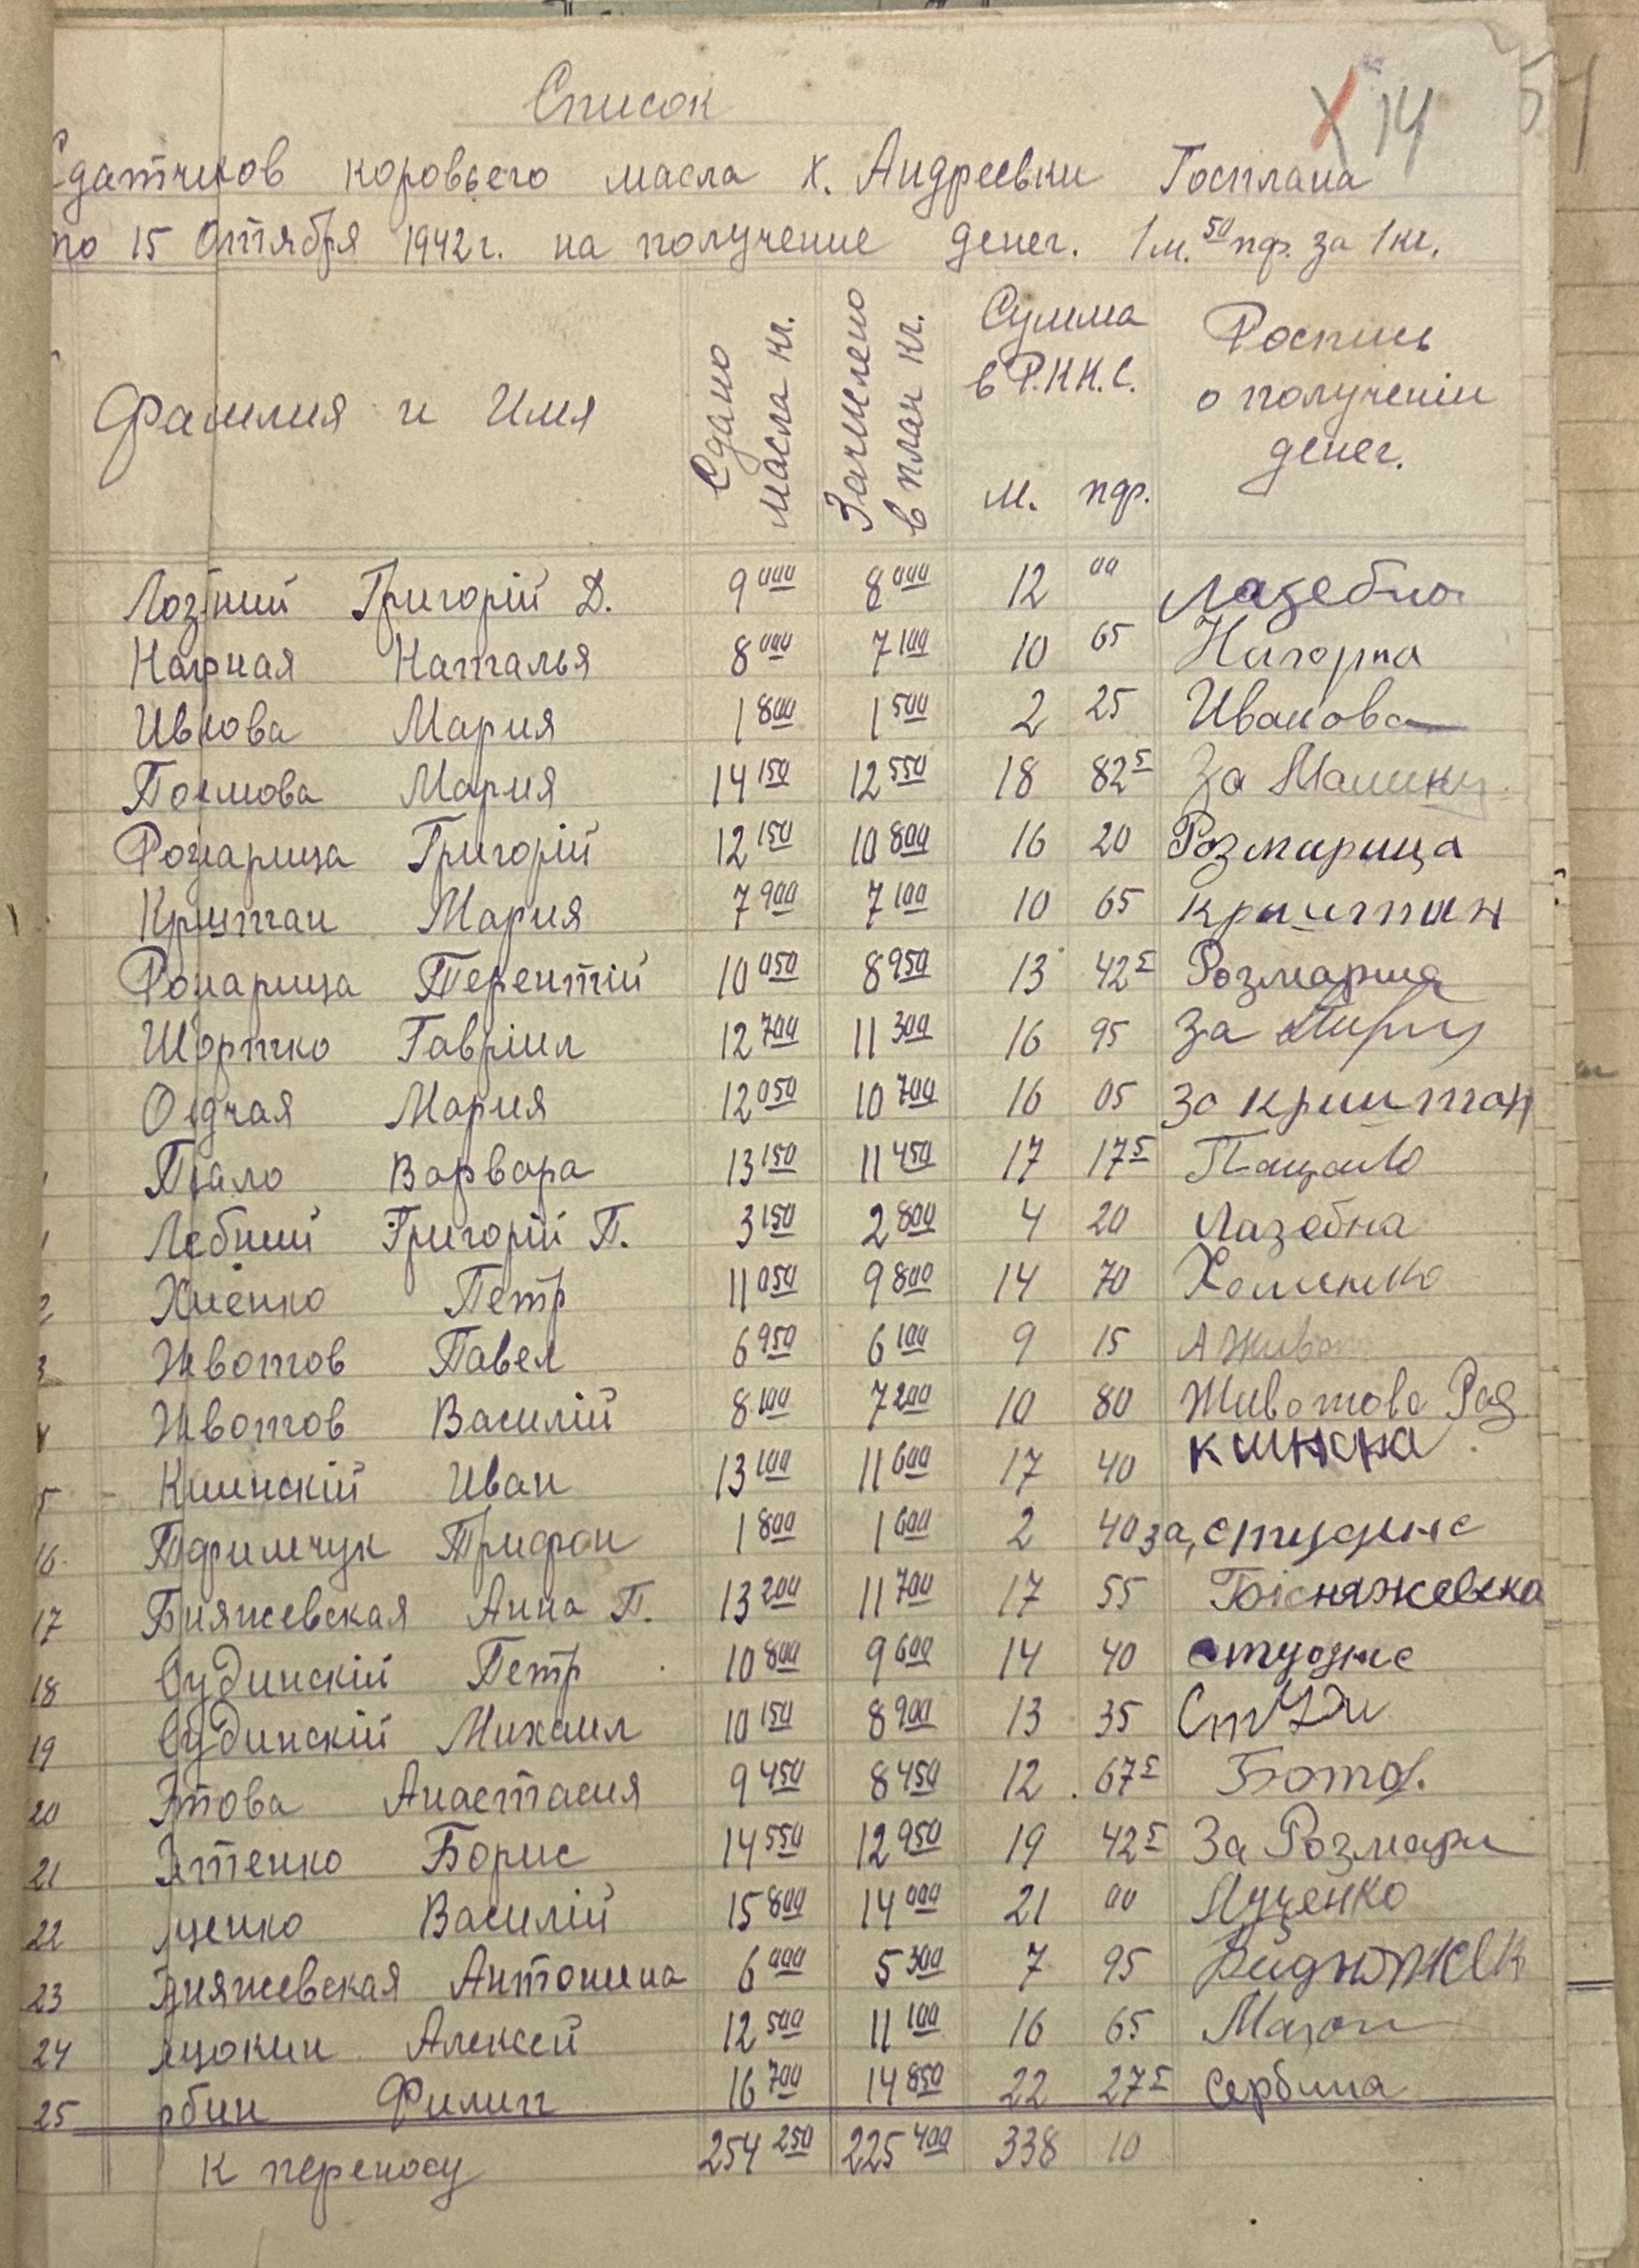 Список
Х 14
51
Сдатчиков коровьего масла х. Андреевки Госплана
по 15 Октября 1942 г. на получение денег. 1 м. 50 пф. за 1 кг.
Фамилия и Имя Сдано масла кг. Зачислено в план кг. Сумма в Р.К.К.С. м. пф. Роспись о полученіи денег.
Лозний Григорій Д. 9 000 8 000 12 00 Лазебно
Нагрная Наталья 8 000 7 100 10 65 Нагорна
Ивнова Мария 1 800 1 500 2 25 Иванова
Поемова Мария 14 150 12 550 18 82 5 За
Розарица Григорій 12 150 10 800 16 20 Розмарица
Криштан Мария 7 900 7 100 10 65 Крыштан
Розарица Терентій 10 050 8 950 13 42 5 Розмариц
Шортко Гавріил 12 700 11 300 16 95 За
Оедчая Мария 12 050 10 700 16 05 за криштан
Пцало Варвара 13 150 11 450 17 17 5 Пацало
Лебний Григорій П. 3 150 2 800 4 20 Лазебна
Хиенко Петр 11 050 9 800 14 70 Хоменко
Животов Павел 6 950 6 100 9 15 А Живот
Животов Василій 8 100 7 200 10 80 Животова
Клинскій Иван 13 100 11 600 17 40 клинска
16 Тфимчук Трифон 1 800 1 600 2 40 за, студинс
17 Бняжевская Анна П. 13 200 11 700 17 55
18 Судинскій Петр 10 800 9 600 14 40 студинс
19 Судинскій Михаил 10 150 8 900 13 35
20 това Анастасия 9 450 8 450 12 67 5 Ботов.
21 тенко Борис 14 550 12 950 19 42 5 За Розмари
22 ценко Василій 15 800 14 000 21 00 Яценко
23 няжевская Антонина 6 000 5 300 7 95
24 Алексей 12 500 11 100 16 65
25 рбин Филип 16 700 14 850 22 27 5 Сербина
К переносу 254 250 225 400 338 10